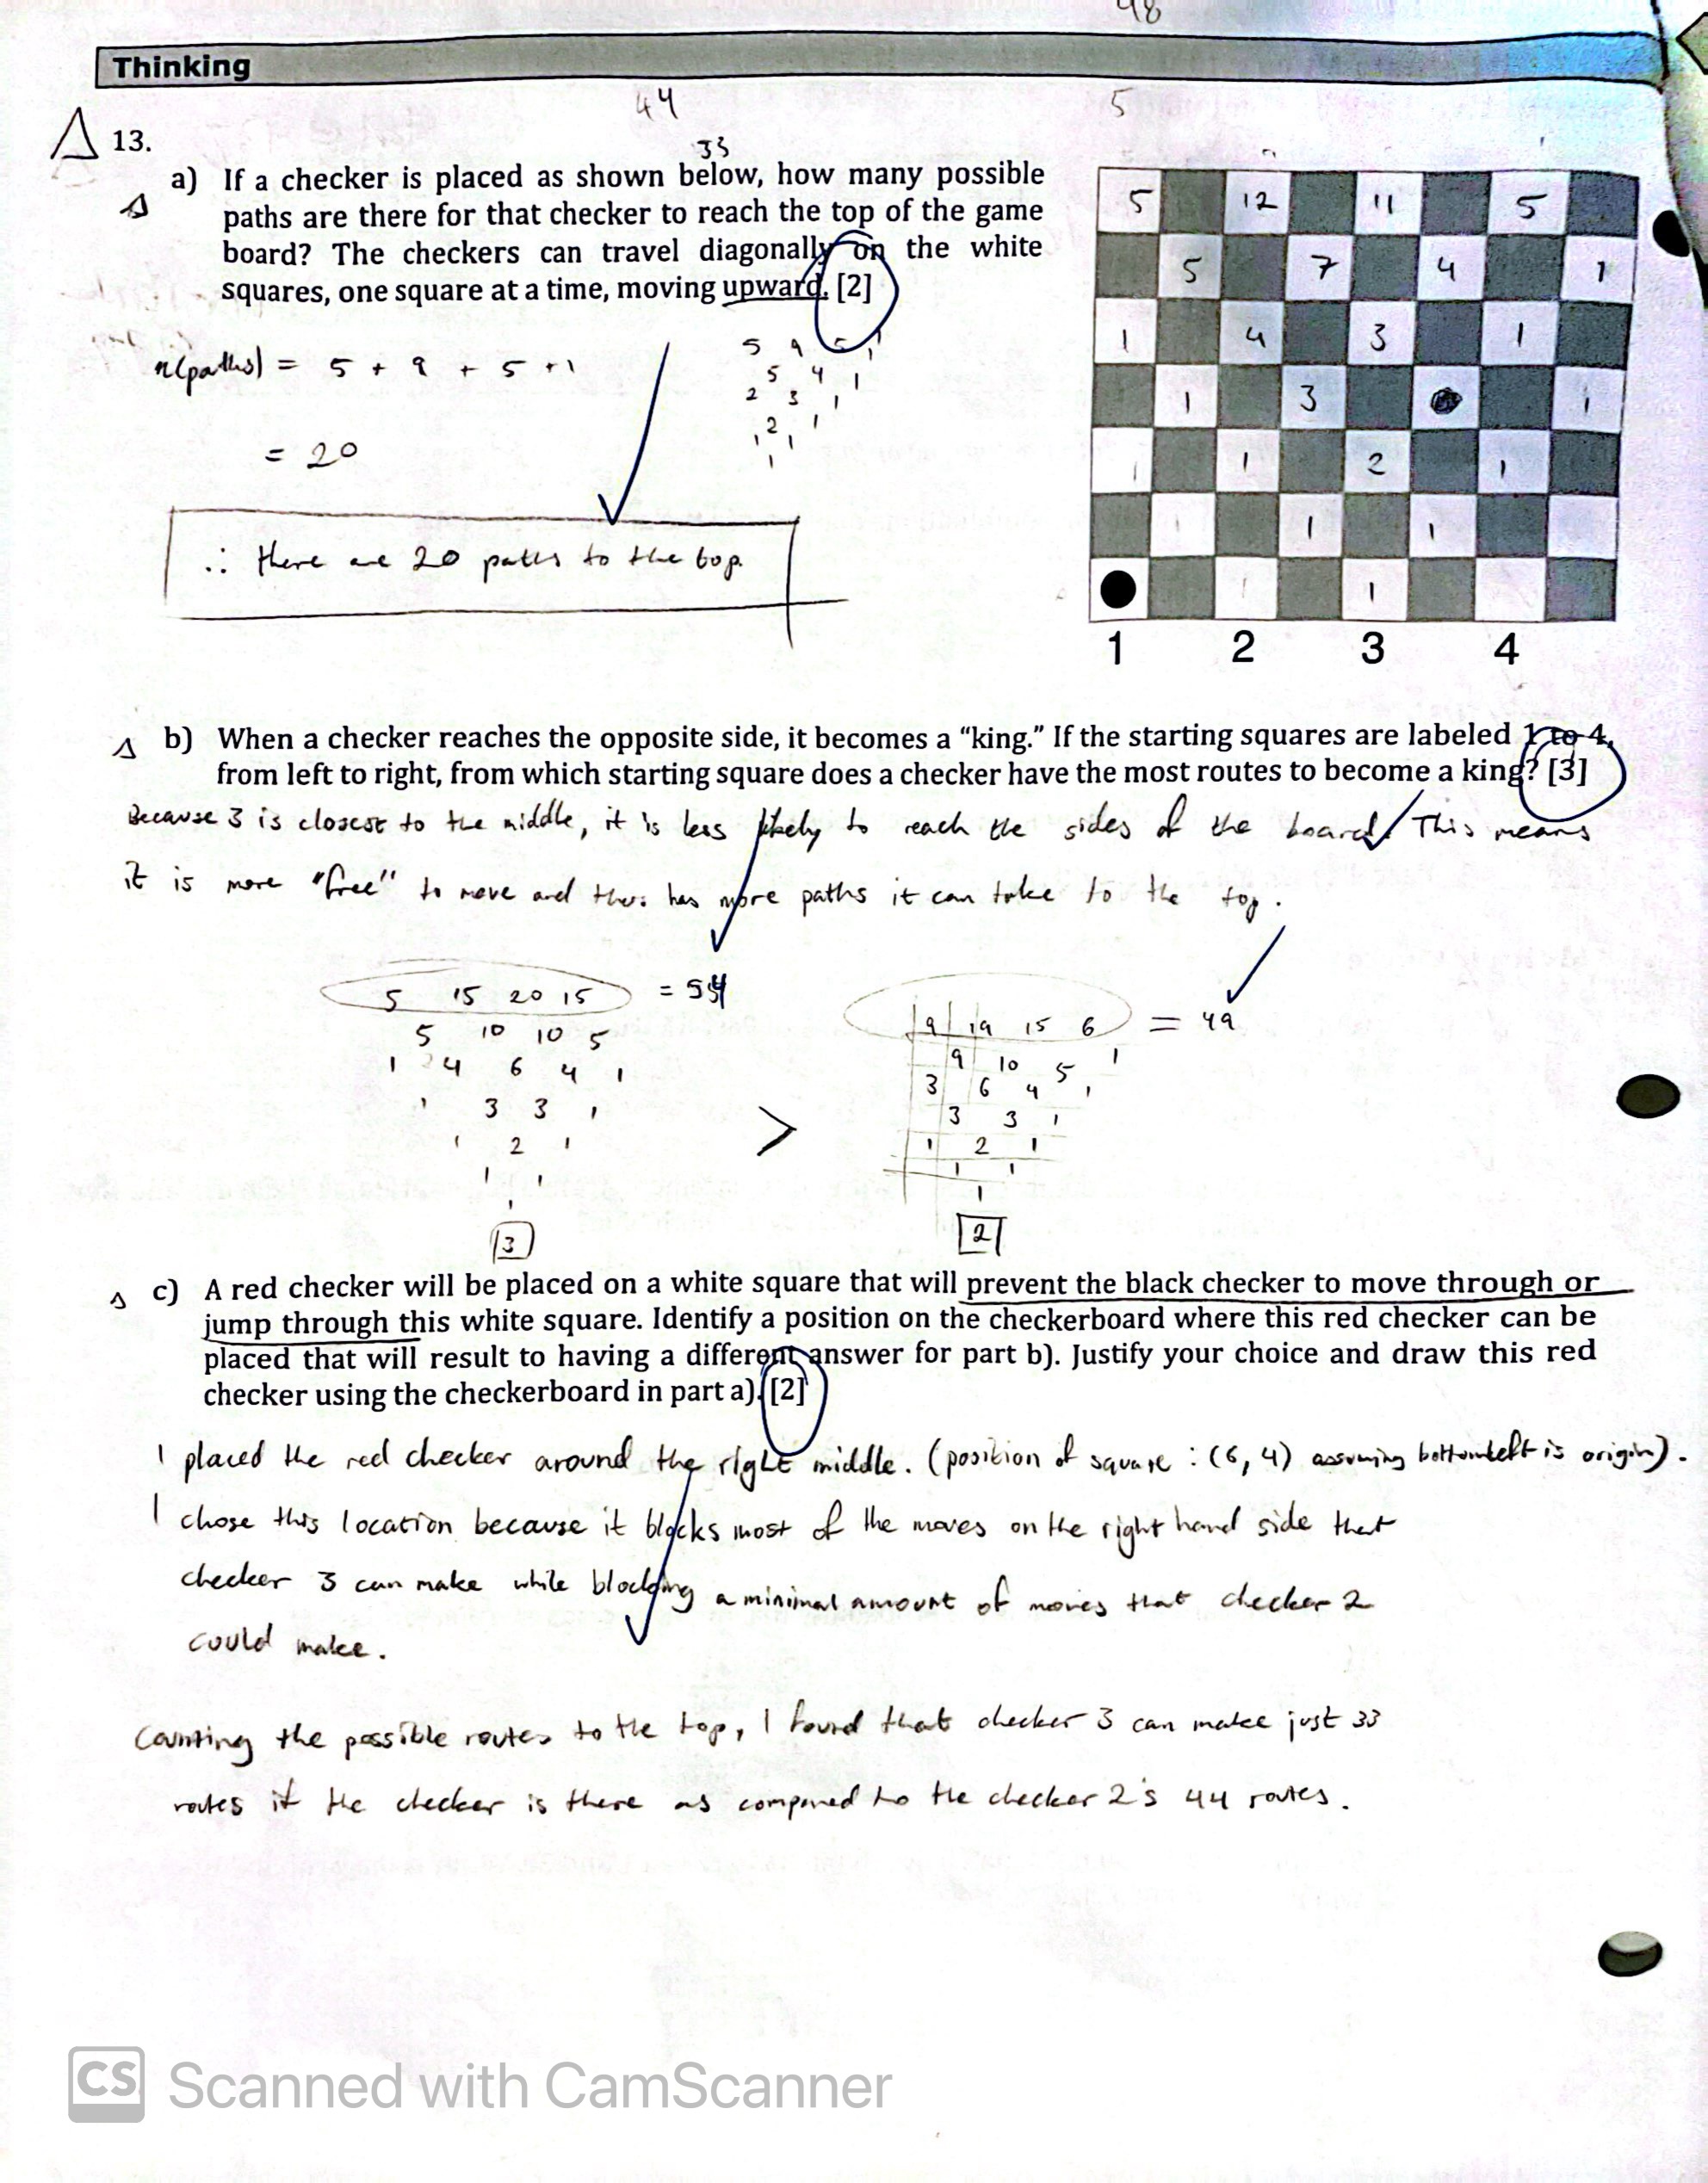 48
Thinking
44
5
33
13.
a) If a checker is placed as shown below, how many possible
paths are there for that checker to reach the top of the game
board? The checkers can travel diagonally on the white
squares, one square at a time, moving upward. [2]
n(paths) = 5 + 9 + 5 + 1
= 20
∴ there are 20 paths to the top.
5 9 5 1
5 4 1
2 3 1
2 1
1 1
1
5 12 11 5
5 7 4 1
1 4 3 1
1 3 1
1 1 2 1
1 1 1
1 1
1 2 3 4
b) When a checker reaches the opposite side, it becomes a “king.” If the starting squares are labeled 1 to 4,
from left to right, from which starting square does a checker have the most routes to become a king? [3]
Because 3 is closest to the middle, it is less likely to reach the sides of the board. This means
it is more "free" to move and thus has more paths it can take to the top.
5 15 20 15 = 54
5 10 10 5
1 4 6 4 1
1 3 3 1
1 2 1
1 1
1
3
>
9 19 15 6 = 49
9 10 5 1
3 6 4 1
3 3 1
1 2 1
1 1
1
2
c) A red checker will be placed on a white square that will prevent the black checker to move through or
jump through this white square. Identify a position on the checkerboard where this red checker can be
placed that will result to having a different answer for part b). Justify your choice and draw this red
checker using the checkerboard in part a). [2]
I placed the red checker around the right middle. (position of square : (6, 4) assuming bottom left is origin).
I chose this location because it blocks most of the moves on the right hand side that
checker 3 can make while blocking a minimal amount of moves that checker 2
could make.
Counting the possible routes to the top, I found that checker 3 can make just 33
routes if the checker is there as compared to the checker 2's 44 routes.
CS Scanned with CamScanner